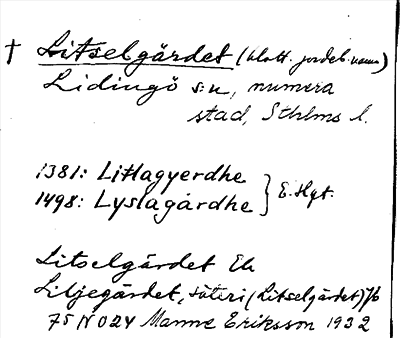 † Litselgärdet (klott. jordeb.namn)
Lidingö s:n, numera
stad, Sthlms l.
1381: Litlagyerdhe
1498: Lyslagårdhe } E. Hgt.
Litselgärdet Ek
Liljegärdet, säteri (Litselgärdet) 7/6
75 N 024 Manne Eriksson 1932